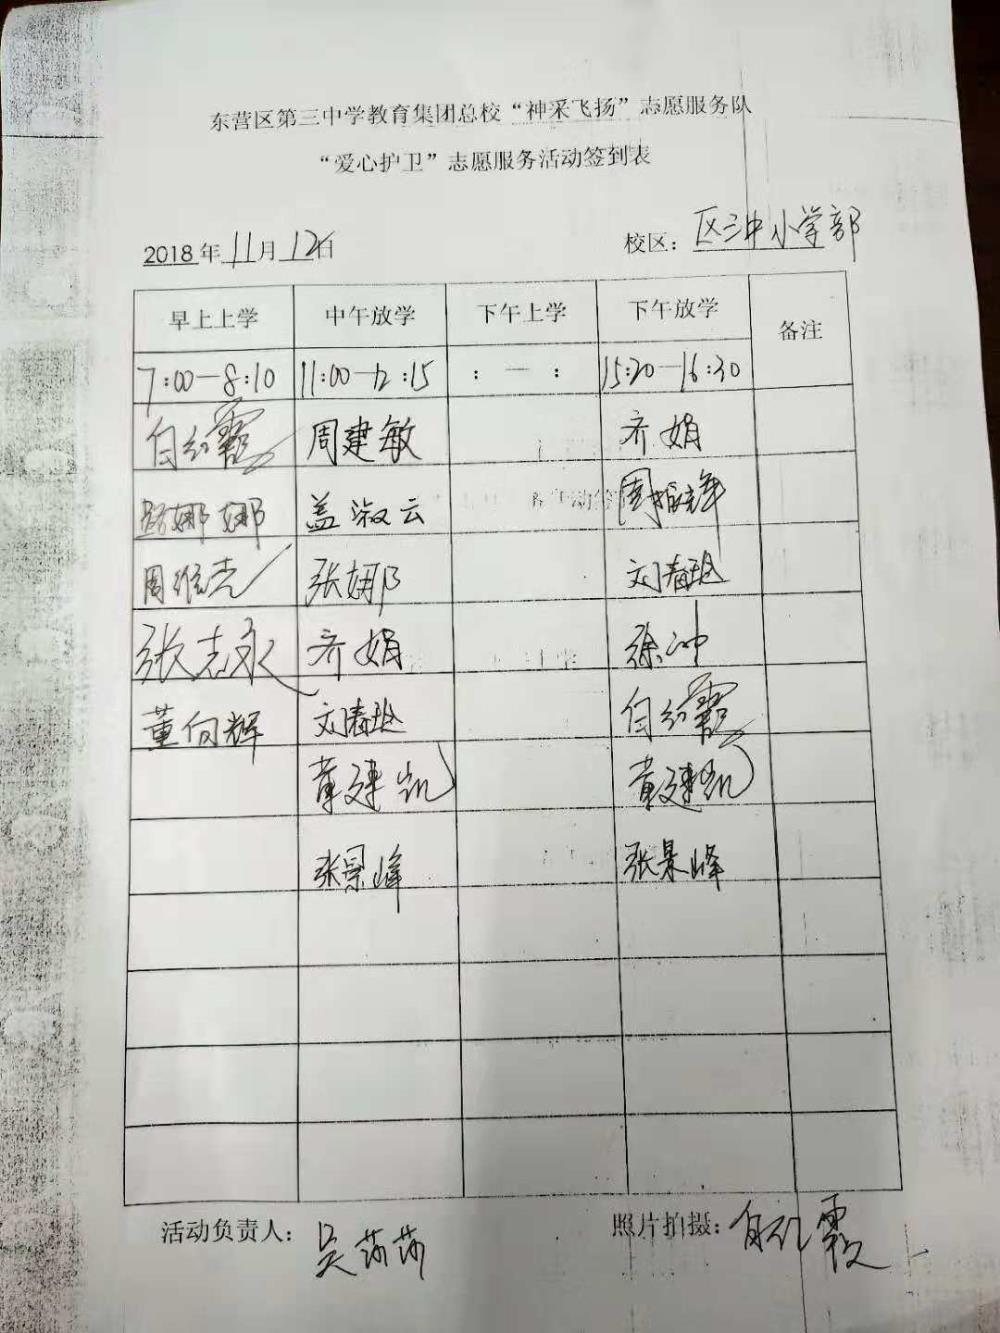 东营区第三中学教育集团总校“神采飞扬”志愿服务队
“爱心护卫”志愿服务活动签到表
2018年11月12日 校区：区三中小学部
早上上学 中午放学 下午上学 下午放学 备注
7:00—8:10 11:00—12:15 : — : 15:20—16:30
周建敏 齐娟
路娜娜 盖淑云 周振锋
张娜 刘春玲
张志永 齐娟 徐冲
董向辉 刘春玲
黄建凯 黄建凯
张景峰 张景峰
活动负责人：吴莎莎 照片拍摄：